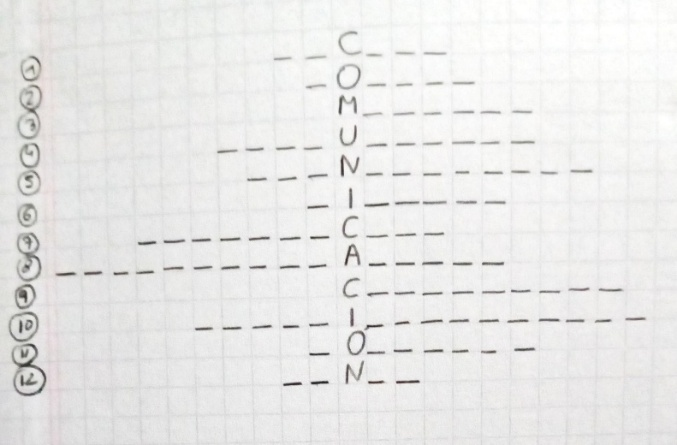 1 _ _ C _ _ _
2 _ O _ _ _ _
3 M _ _ _ _ _ _
4 _ _ _ _ U _ _ _ _ _ _
5 _ _ _ N _ _ _ _ _ _ _ _
6 _ I _ _ _ _ _
7 _ _ _ _ _ _ _ C _ _ _
8 _ _ _ _ _ _ _ _ _ _ A _ _ _ _ _
9 C _ _ _ _ _ _ _ _ _
10 _ _ _ _ _ I _ _ _ _ _ _ _ _ _ _
11 _ O _ _ _ _ _ _
12 _ _ N _ _